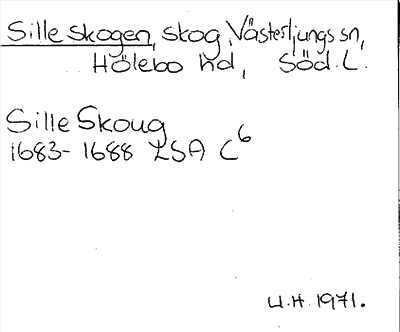 Sille skogen, skog, Västerljungs sn,
Hölebo hd, Söd. L.
Sille Skoug
1683-1688 LSA C6
U.H. 1971.